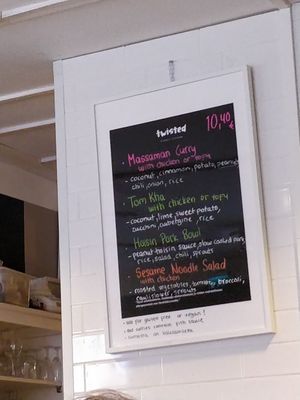 twisted
10,40€
· Massaman Curry
with chicken or tofu
- coconut, cinnamon, potato, peanut,
chili, onion, rice
· Tom Kha
with chicken or tofu
- coconut, lime, sweet potato,
zucchini, aubergine, rice
· Hoisin Pork Bowl
- peanut hoisin sauce, slow cooked pork,
rice, salad, chili, sprouts
· Sesame Noodle Salad
with chicken
- roasted vegetables, tomato, broccoli,
cauliflower, sprouts
· Ask for gluten free or vegan!
· All curries contain fish sauce